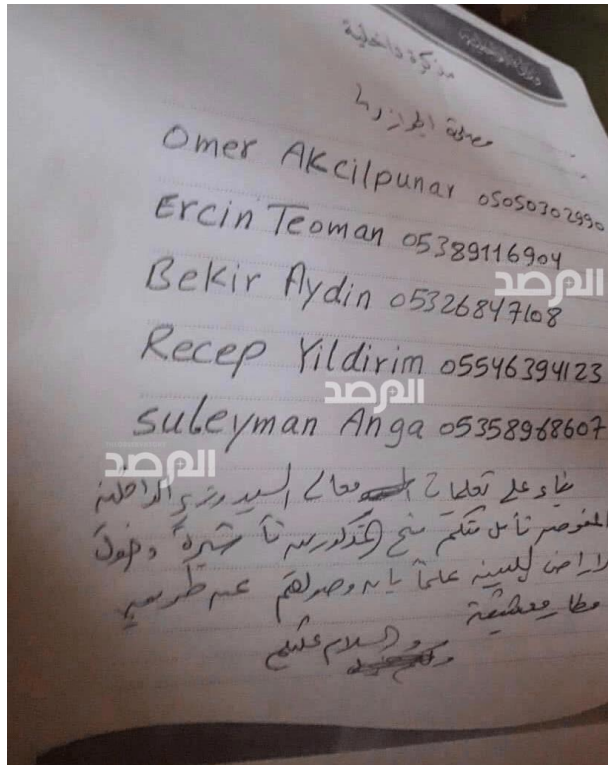 مذكرة داخلية
مصلحة الجوازات
Omer AKcilpunar 05050302990
Ercin Teoman 05389116904
Bekir Aydin 05326847108
Recep Yildirim 05546394123
suleyman Anga 05358968607
المرصد
المرصد
المرصد
بناء على تعليمات معالي السيد وزير الداخلية
المفوض نأمل منكم منح المذكورين تأشيرة دخول
لاراضي ليبيا علماً بان وصولهم عن طريق
مطار معيتيقة
والسلام عليكم